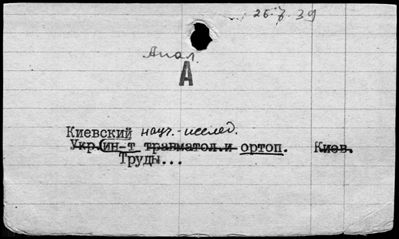 26.7.39
Анал.
А
Киевский науч.-исслед.
Укр.ин-т травматол.и ортоп. Киев.
Труды...